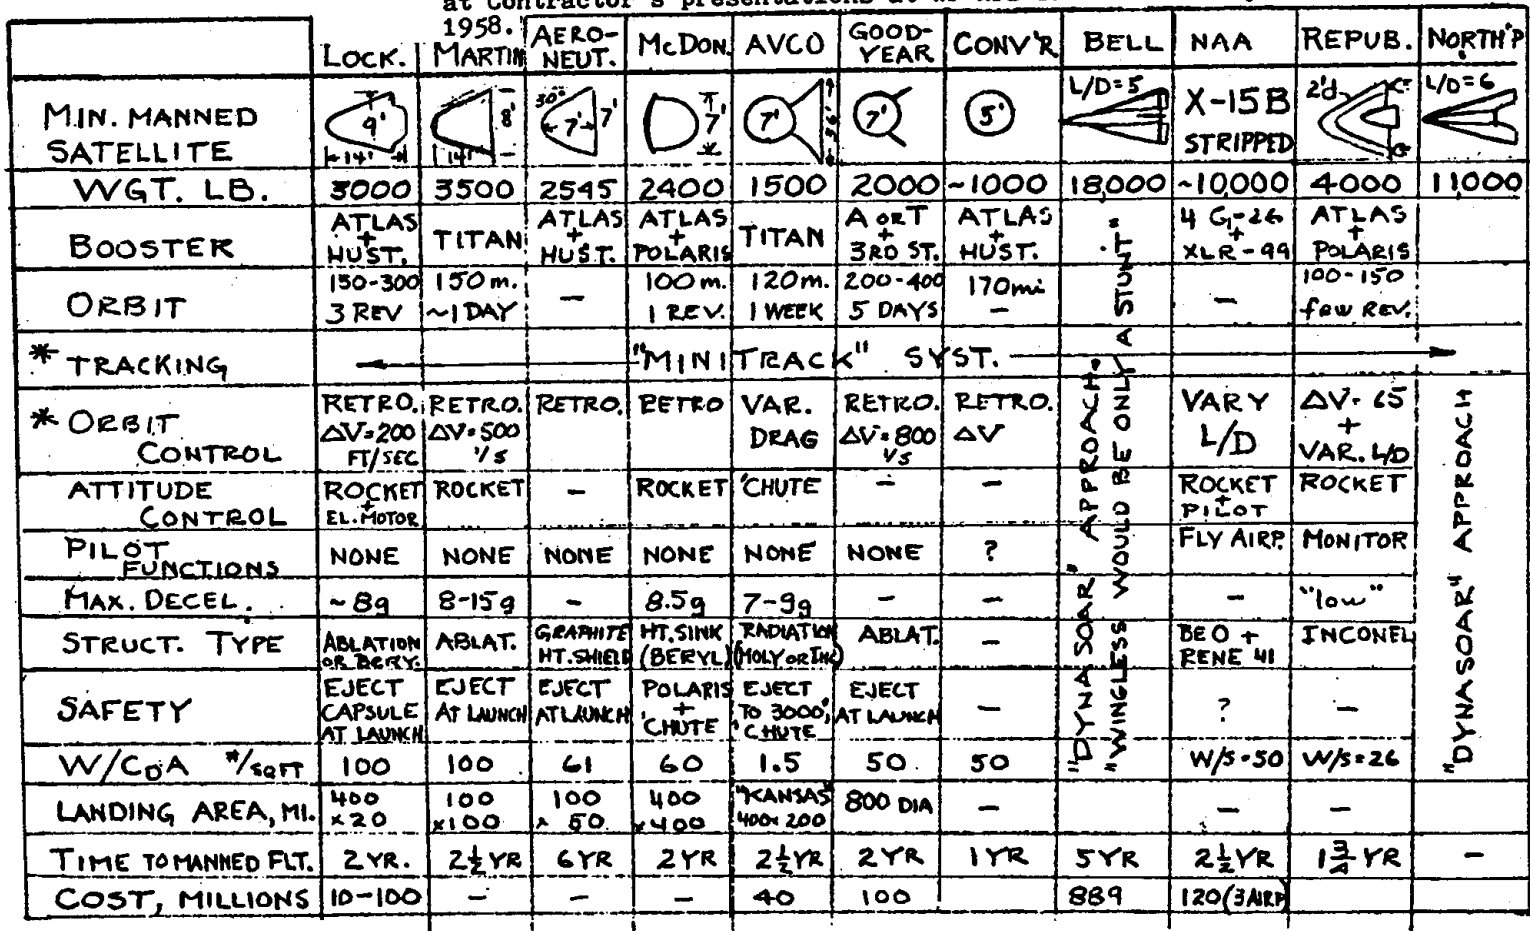 at Contractor's presentations at
1958.
LOCK. MARTIN AERO-NEUT. McDON. AVCO GOOD-YEAR CONV'R BELL NAA REPUB. NORTH'P
MIN. MANNED SATELLITE 9' 14' 8' 14' 30° 7' 7' 7' 7' 36' 7' 5' L/D=5 X-15B STRIPPED 2'd L/D=6
WGT. LB. 3000 3500 2545 2400 1500 2000 ~1000 18,000 ~10,000 4000 11,000
BOOSTER ATLAS + HUST. TITAN ATLAS + HUST. ATLAS + POLARIS TITAN A OR T + 3RD ST. ATLAS + HUST. 4 G-26 + XLR-99 ATLAS + POLARIS
ORBIT 150-300 3 REV 150 m. ~1 DAY — 100 m. 1 REV. 120 m. 1 WEEK 200-400 5 DAYS 170 mi — — 100-150 few REV.
* TRACKING "MINITRACK" SYST.
* ORBIT CONTROL RETRO. ΔV=200 FT/SEC RETRO. ΔV=500 '/S RETRO. RETRO VAR. DRAG RETRO. ΔV=800 '/S RETRO. ΔV VARY L/D ΔV=65 + VAR. L/D
ATTITUDE CONTROL ROCKET + EL. MOTOR ROCKET — ROCKET 'CHUTE — — ROCKET + PILOT ROCKET
PILOT FUNCTIONS NONE NONE NONE NONE NONE NONE ? FLY AIRP. MONITOR
MAX. DECEL. ~8g 8-15g — 8.5g 7-9g — — — "low"
STRUCT. TYPE ABLATION OR BERY. ABLAT. GRAPHITE HT. SHIELD HT. SINK (BERYL) RADIATION (MOLY OR INC) ABLAT. — BEO + RENE 41 INCONEL
SAFETY EJECT CAPSULE AT LAUNCH EJECT AT LAUNCH EJECT AT LAUNCH POLARIS + 'CHUTE EJECT TO 3000', 'CHUTE EJECT AT LAUNCH — ? —
W/CDA #/SQFT 100 100 61 60 1.5 50 50 W/S=50 W/S=26
LANDING AREA, MI. 400 x 20 100 x100 100 x 50 400 x400 "KANSAS" 400x200 800 DIA — — —
TIME TO MANNED FLT. 2 YR. 2½ YR 6 YR 2 YR 2½ YR 2 YR 1 YR 5 YR 2½ YR 1¾ YR —
COST, MILLIONS 10-100 — — — 40 100 889 120 (3 AIRP)
"DYNA SOAR" APPROACH.
"WINGLESS WOULD BE ONLY A STUNT"
"DYNASOAR" APPROACH